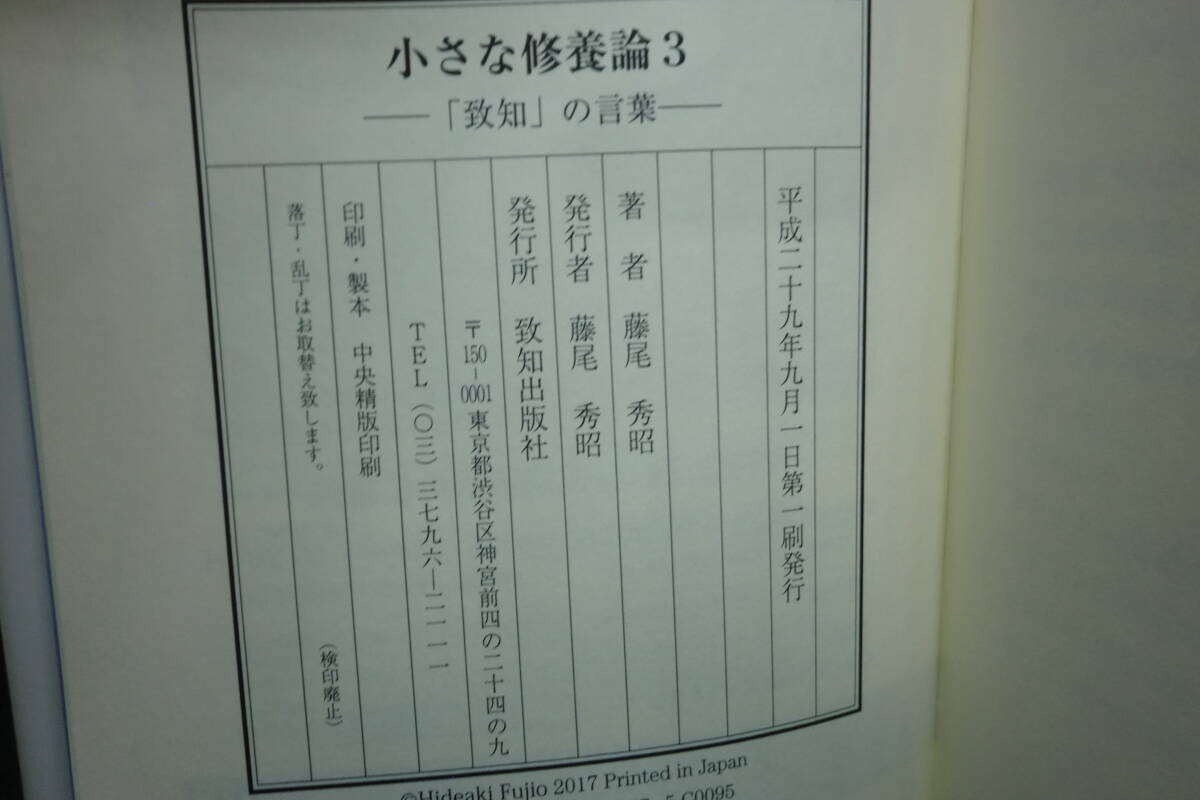 小さな修養論3
―「致知」の言葉―
平成二十九年九月一日第一刷発行
著者 藤尾 秀昭
発行者 藤尾 秀昭
発行所 致知出版社
〒150-0001 東京都渋谷区神宮前四の二十四の九
TEL(〇三)三七九六―二一一一
印刷・製本 中央精版印刷
落丁・乱丁はお取替え致します。
(検印廃止)
©Hideaki Fujio 2017 Printed in Japan
C0095